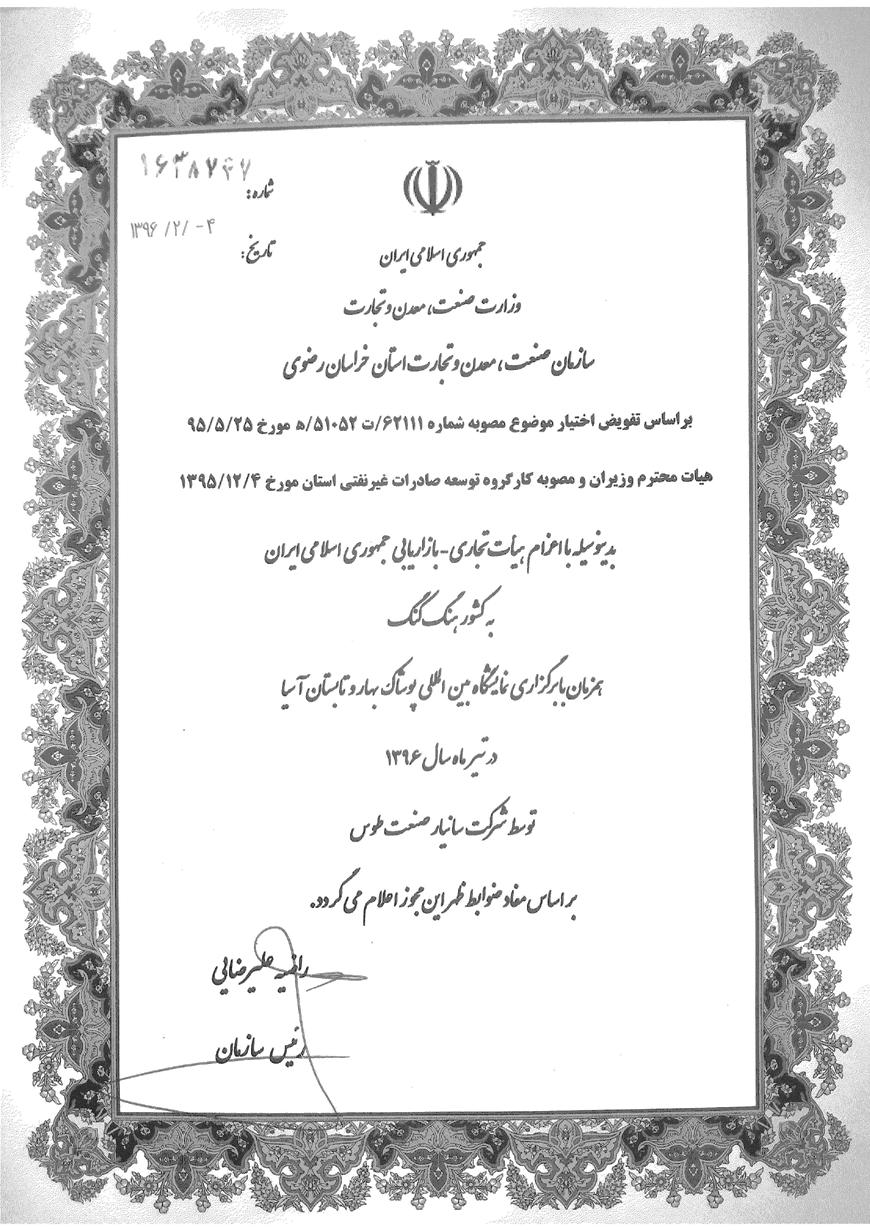 شماره: ۱۶۳۸۷۴۷
تاریخ: ۱۳۹۶/۲/-۴
جمهوری اسلامی ایران
وزارت صنعت، معدن و تجارت
سازمان صنعت، معدن و تجارت استان خراسان رضوی
براساس تفویض اختیار موضوع مصوبه شماره ۶۲۱۱۱/ت ۵۱۰۵۲/ه مورخ ۹۵/۵/۲۵
هیات محترم وزیران و مصوبه کارگروه توسعه صادرات غیرنفتی استان مورخ ۱۳۹۵/۱۲/۴
بدینوسیله با اعزام هیأت تجاری-بازاریابی جمهوری اسلامی ایران
به کشور هنگ کنگ
همزمان با برگزاری نمایشگاه بین المللی پوشاک بهار و تابستان آسیا
در تیر ماه سال ۱۳۹۶
توسط شرکت سانیار صنعت طوس
براساس مفاد ضوابط ظهر این مجوز اعلام می گردد.
راضیه علیرضایی
رئیس سازمان